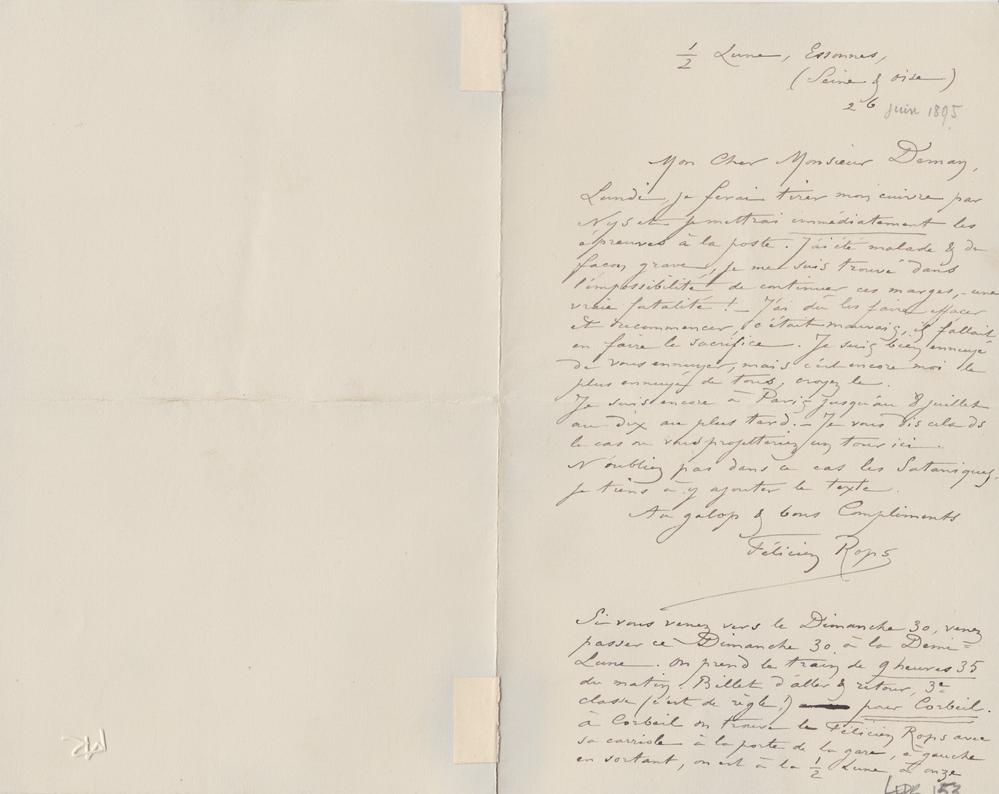 1/2 Lune, Essonnes,
(Seine & Oise)
26 juin 1895
Mon Cher Monsieur Deman,
Lundi, je ferai tirer mon cuivre par
Nys et je mettrai immédiatement les
épreuves à la poste. J'ai été malade & de
façon grave, je me suis trouvé dans
l'impossibilité de continuer ces marges, - une
vraie fatalité ! - J'ai dû les faire effacer
et recommencer, c'était mauvais, il fallait
en faire le sacrifice. Je suis bien ennuyé
de vous ennuyer, mais c'est encore moi le
plus ennuyé de tous, croyez le.
Je suis encore à Paris jusqu'au 8 juillet
au dix au plus tard. - Je vous dis cela ds
le cas où vous projetteriez un tour ici.
N'oubliez pas dans ce cas les Sataniques,
je tiens à y ajouter le texte.
Au galop & bons Compliments
Félicien Rops
Si vous venez vers le Dimanche 30, venez
passer ce Dimanche 30 à la Demi=
Lune. On prend le train de 9 heures 35
du matin. Billet d'aller & retour, 3e
classe (c'est de règle!) pour Corbeil.
à Corbeil on trouve le Félicien Rops avec
sa carriole à la porte de la gare, à gauche
en sortant, on est à la 1/2 Lune à onze